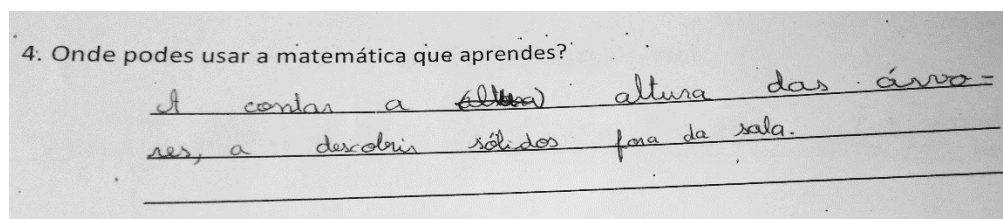 4. Onde podes usar a matemática que aprendes?
A contar a (altura) altura das árvo=
res, a descobrir sólidos fora da sala.